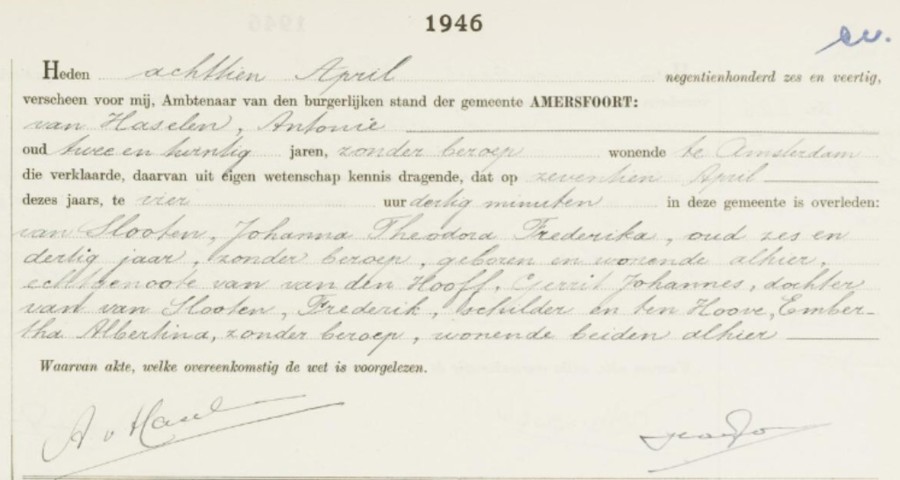 1946
ev.
Heden achttien April negentienhonderd zes en veertig,
verscheen voor mij, Ambtenaar van den burgerlijken stand der gemeente AMERSFOORT:
van Haselen, Antonie
oud twee en twintig jaren, zonder beroep wonende te Amsterdam
die verklaarde, daarvan uit eigen wetenschap kennis dragende, dat op zeventien April
dezes jaars, te vier uur dertig minuten in deze gemeente is overleden:
van Slooten, Johanna Theodora Frederika, oud zes en
dertig jaar, zonder beroep, geboren en wonende alhier,
echtgenoote van van den Hooff, Gerrit Johannes, dochter
van van Slooten, Frederik, schilder en ten Hoove, Ember-
tha Albertina, zonder beroep, wonende beiden alhier
Waarvan akte, welke overeenkomstig de wet is voorgelezen.
A v Hasel